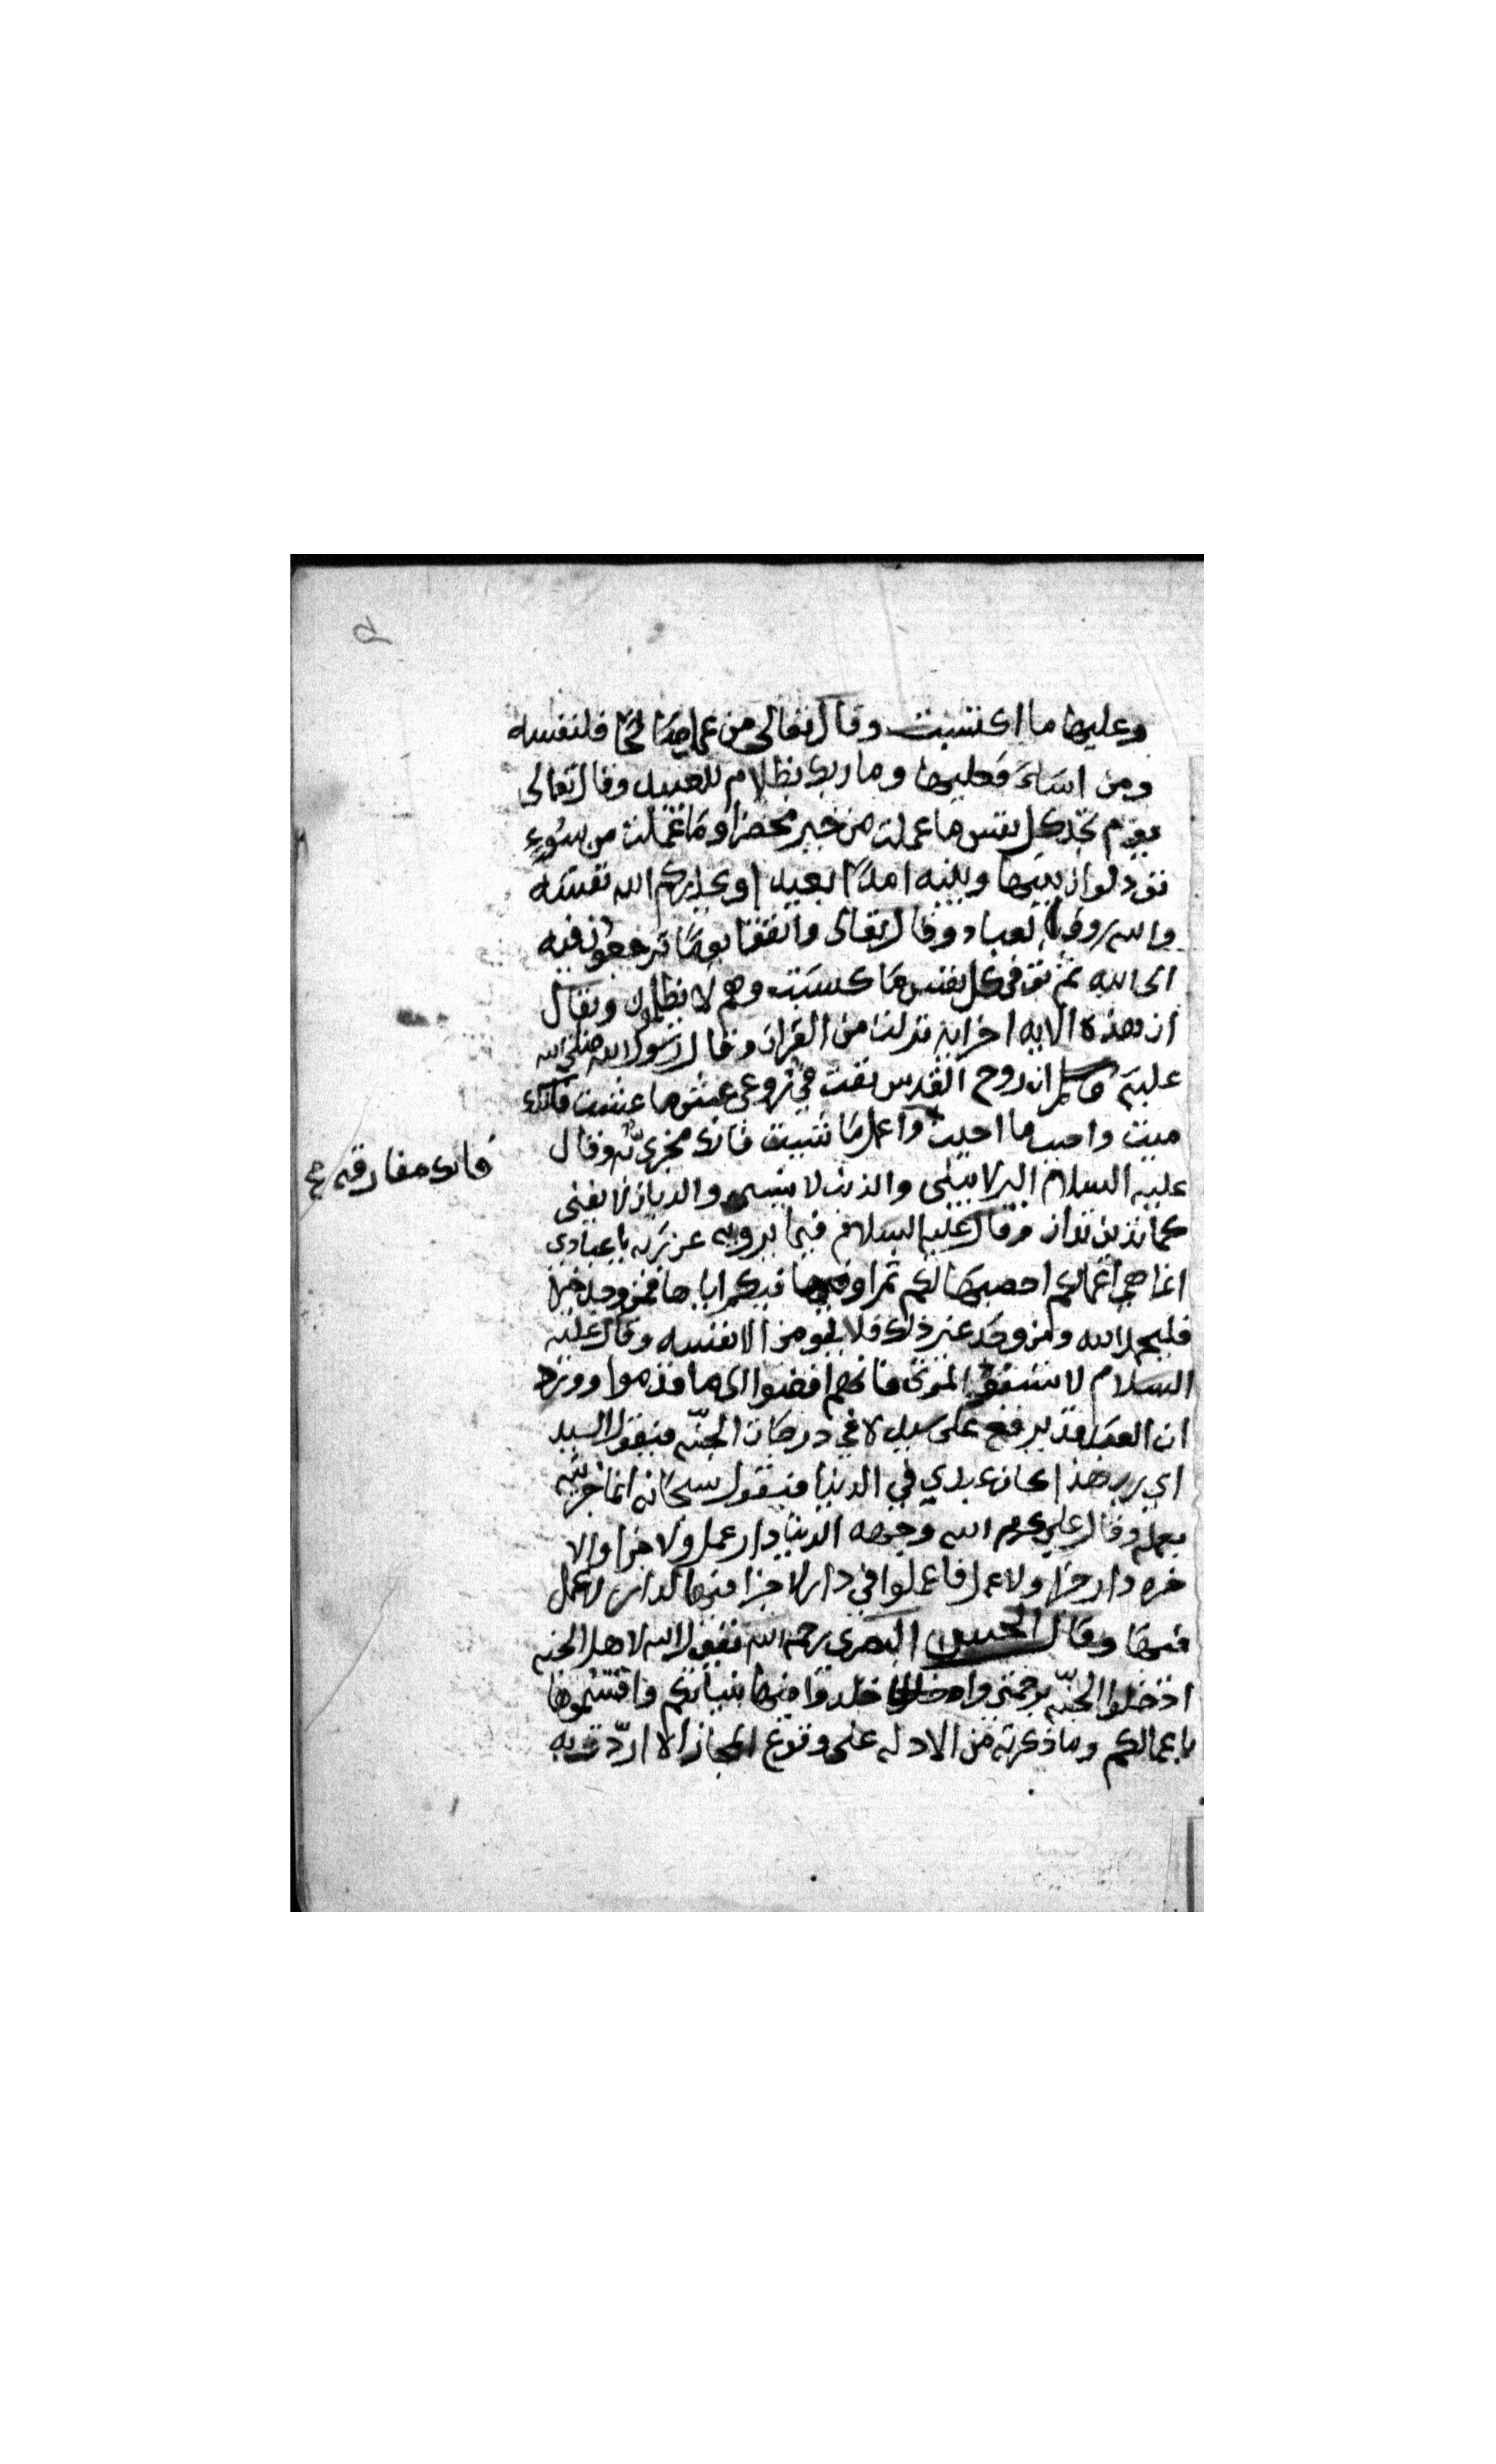 وعليها ما اكتسبت وقال تعالى من عمل صالحا فلنفسه
ومن اساء فعليها وما ربك بظلام للعبيد وقال تعالى
يوم تجد كل نفس ما عملت من خير محضرا وما عملت من سوء
تود لو ان بينها وبينه امدا بعيدا ويحذركم الله نفسه
والله روف بالعباد وقال تعالى واتقوا يوما ترجعون فيه
الى الله ثم توفى كل نفس ما كسبت وهم لا يظلمون ويقال
ان هذه الايه اخر ايه نزلت من القران وقال رسول الله صلى الله
عليه وسلم ان روح القدس نفث في روعى عش ما عشت فانك
ميت واحبب ما احببت واعمل ما شيت فانك مجزي به وقال
فانك مفارقه صح
عليه السلام البر لا يبلى والذنب لا ينسى والديان لا يفنى
كما تدين تدان وقال عليه السلام فيما يرويه عن ربه يا عبادي
انما هي اعمالكم احصيها لكم ثم اوفيكم اياها فمن وجد خيرا
فليحمد الله ومن وجد غير ذلك فلا يلومن الا نفسه وقال عليه
السلام لا تسبوا الموتى فانهم افضوا الى ما قدموا وورد
ان العبد قد يرفع على سيده في درجات الجنه فيقول السيد
اي رب هذا كان عبدي في الدنيا فيقول سبحانه انما جزيته
بعمله وقال علي كرم الله وجهه الدنيا دار عمل ولا جزا والا
خره دار جزا ولا عمل فاعملوا في دار لا جزا فيها لدار لا عمل
فيها وقال الحسن البصرى رحمه الله يقول الله لاهل الجنه
ادخلوا الجنه برحمتي واخلدوا فيها بنياتكم واقتسموها
باعمالكم وما ذكرته من الادله على وقوع المجازاه اردت به